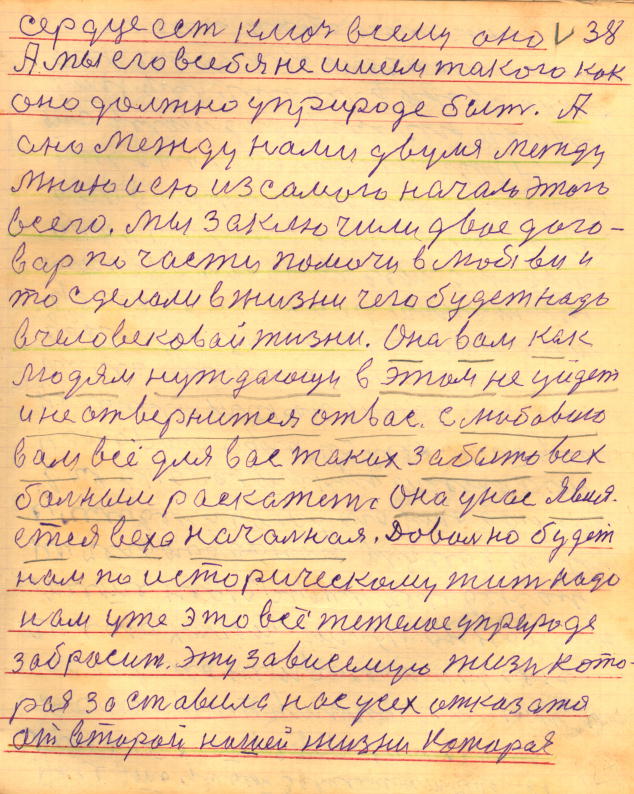 сердце ест ключ всему оно V 38
А мы его всебя не имеем такого как
оно должно уприроде быт. А
оно между нами двумя между
мною и ею из самого начало этого
всего. мы заключили двое дого-
вар по части помочи в любви и
то сделали в жизни чего будет надо
в человековай жизни. Она вам как
людям нуждающи в этом не уйдет
и не отвернится от вас. с любовию
вам всё для вас таких забыто всех
болным раскажет. Она у нас явля-
ется веха началная. Доволно будет
нам по историческому жит надо
нам уже это всё тежелое уприроде
забросит. эту зависемую жизн кото-
рая заставила нас усех отказатя
от второй нашей жизни которая